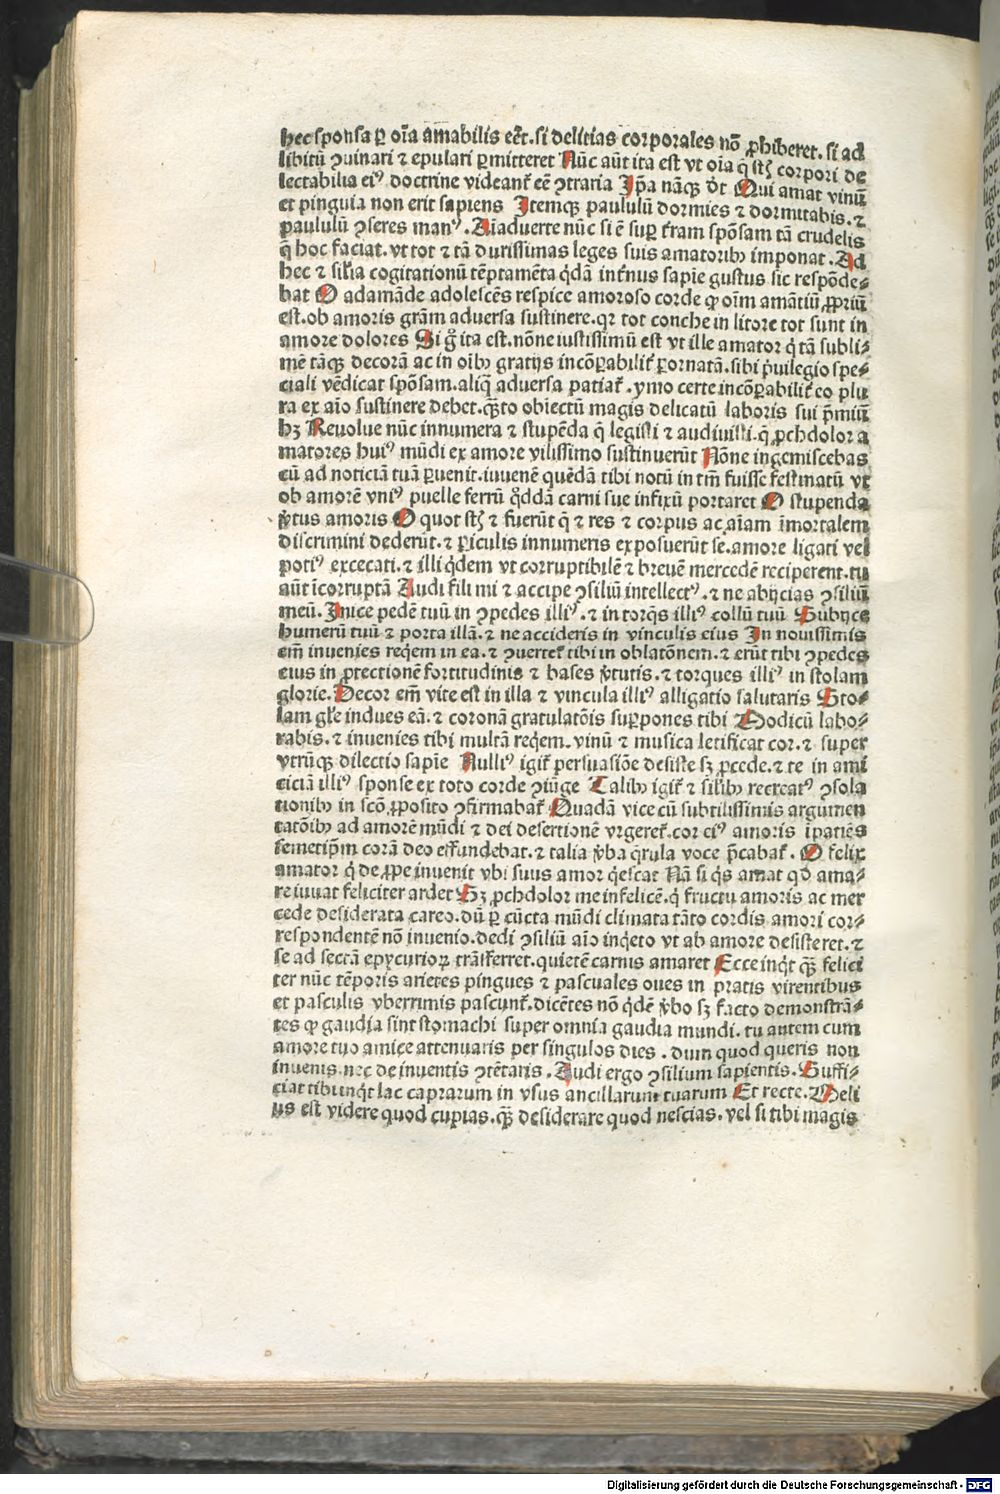 hec sponsa ꝑ oīa amabilis eēt. si delitias corporales nō ꝓhiberet. si ad
libitū ꝯuinari ⁊ epulari ꝑmitteret Nūc aūt ita est vt oīa q̄ st̄ corpori de
lectabilia eiꝰ doctrine videant̄ eē ꝯtraria Ip̄a nāqꝫ dt̄ Qui amat vinū
et pinguia non erit sapiens Itemqꝫ paululū dormies ⁊ dormitabis. ⁊
paululū ꝯseres manꝰ. Aīaduerte nūc si ē suꝑ t̄ram spōsam tā crudelis
q̄ hoc faciat. vt tot ⁊ tā durissimas leges suis amatoribꝫ imponat. Ad
hec ⁊ sil̄ia cogitationū tēptamēta q̇dā int̄nus sapīe gustus sic respōde⸗
bat O adamāde adolescēs respice amoroso corde ꝙ oīm amātiū ꝓpriū
est. ob amoris grām aduersa sustinere. qꝛ tot conche in litore tot sunt in
amore dolores Si g̊ ita est. nōne iustissimū est vt ille amator q̇ tā subli⸗
mē tāqꝫ decorā ac in oībꝫ gratijs incōꝑabilit̄ ꝑornatā. sibi ṗuilegio spe⸗
ciali vēdicat spōsam. aliq̄ aduersa patiat̄. ymo certe incōꝑabilit̄ eo plu
ra ex aīo sustinere debet. qꝫto obiectū magis delicatū laboris sui p̄miū
hꝫ Reuolue nūc innumera ⁊ stupēda q̄ legisti ⁊ audiuisti. q̄ ꝓchdolor a
matores huiꝰ mūdi ex amore vilissimo sustinuerūt Nōne ingemiscebas
cū ad noticiā tuā ꝑuenit. iuuenē quēdā tibi notū in tm̄ fuisse festinatū vt
ob amorē vniꝰ puelle ferrū q̇ddā carni sue infixū portaret O stupenda
v̇tus amoris O quot st̄ ⁊ fuerūt q̇ ⁊ res ⁊ corpus ac aīam īmortalem
discrimini dederūt. ⁊ ꝑiculis innumeris exposuerūt se. amore ligati vel
potiꝰ excecati. ⁊ illi q̇dem vt corruptibilē ⁊ breuē mercedē reciperent. tu
aūt īcorruptā Audi fili mi ⁊ accipe ꝯsiliū intellectꝰ. ⁊ ne abijcias ꝯsiliū
meū. Inice pedē tuū in ꝯpedes illiꝰ. ⁊ in torq̄s illiꝰ collū tuū. Subijce
humerū tuū ⁊ porta illā. ⁊ ne accideris in vinculis eius In nouissimis
em̄ inuenies req̇em in ea. ⁊ ꝯuertet̄ tibi in oblatōnem. ⁊ erūt tibi ꝯpedes
eius in ꝓtectionē fortitudinis ⁊ bases v̇tutis. ⁊ torques illiꝰ in stolam
glorie. Decor em̄ vite est in illa ⁊ vincula illiꝰ alligatio salutaris Sto⸗
lam gl̄e indues eā. ⁊ coronā gratulatōis suꝑpones tibi Modicū labo⸗
rabis. ⁊ inuenies tibi multā req̇em. vinū ⁊ musica letificat cor. ⁊ super
vtrūqꝫ dilectio sapīe Nulliꝰ igit̄ persuasiōe desiste sꝫ ꝓcede. ⁊ te in ami
ciciā illiꝰ sponse ex toto corde ꝯiūge Talibꝫ igit̄ ⁊ sil̄ibꝫ recreatꝰ ꝯsola
tionibꝫ in scō ꝓposito ꝯfirmabat̄. Quadā vice cū subtilissimis argumen
tatōibꝫ ad amorē mūdi ⁊ dei desertionē vrgeret̄. cor eiꝰ amoris īpatiēs
semetip̄m corā deo effundebat. ⁊ talia v̇ba q̄rula voce p̄cabat̄. O felix
amator q̇ de ꝓpe inuenit vbi suus amor q̇escat Nā si q̇s amat qd̄ ama⸗
re iuuat feliciter ardet Sꝫ ꝓchdolor me infelicē. q̇ fructu amoris ac mer
cede desiderata careo. dū ꝑ cūcta mūdi climata tāto cordis amori cor⸗
respondentē nō inuenio. dedi ꝯsiliū aīo inq̇eto vt ab amore desisteret. ⁊
se ad sectā epycurioꝝ trāsferret. quietē carnis amaret Ecce inq̇t qꝫ felici
ter nūc tēporis arietes pingues ⁊ pascuales oues in pratis virentibus
et pasculis vberrimis pascunt̄. dicētes nō q̇dē v̇bo sꝫ facto demonstrā⸗
tes ꝙ gaudia sint stomachi super omnia gaudia mundi. tu autem cum
amore tuo amice attenuaris per singulos dies. dum quod queris non
inuenis. nec de inuentis ꝯtētaris. Audi ergo ꝯsilium sapientis. Suffi⸗
ciat tibi inq̇t lac caprarum in vsus ancillarum tuarum Et recte. Meli
us est videre quod cupias. qꝫ desiderare quod nescias. vel si tibi magis
Digitalisierung gefördert durch die Deutsche Forschungsgemeinschaft - DFG